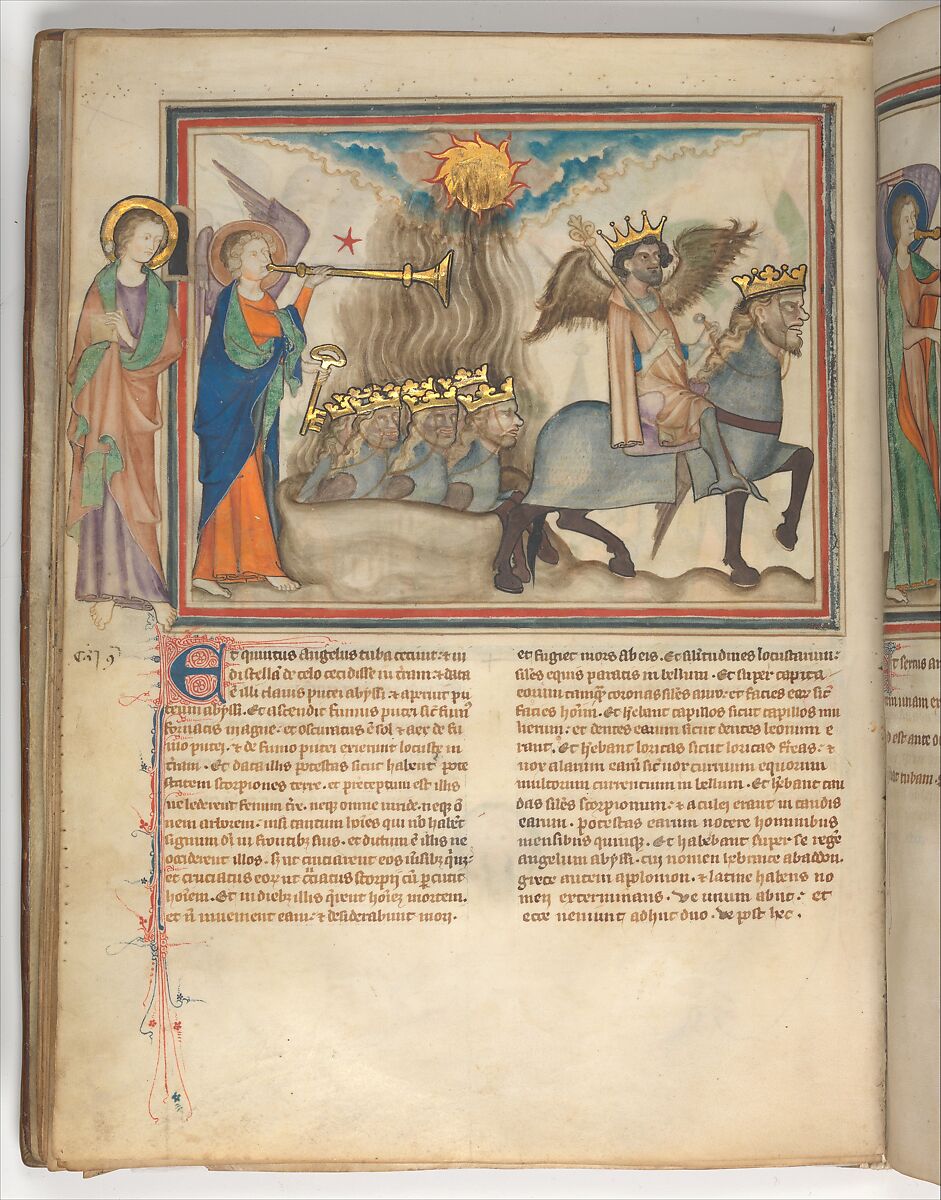 Et quintus angelus tuba cecinit: ⁊ ui
di stellā de celo cecidisse in t̄ram: ⁊ data
ē illi clauis putei abyssi. ⁊ aperuit pu
teum abyssi. Et ascendit fumus putei sic̄ fum᷒
fornacis magne: et obscuratus ē sol ⁊ aer de fu
mo putei. ⁊ de fumo putei exierunt locuste in
t̄ram. Et data illis potestas sicut habent pote
statem scorpiones terre. et preceptum est illis
ne lederent fenum t̄re. neq; omne uiride. neq; ō
nem arborem: nisi tantum hoīes qui nō habēt
signum dī in frontibꝫ suis. et dictum ē illis ne
occiderent illos. sꝫ ut cruciarent eos
et cruciatus eoꝝ ut c̄ciatus scorpii cū ꝑcutit
hoīem. Et in diebꝫ illis q̄rent hoīes mortem.
et n̄ inuenient eam: ⁊ desiderabunt mori.
et fugiet mors ab eis. Et sil̄itudines locustarum:
sil̄es equis paratis in bellum. Et super capita
eorum tamq̄ coronas sil̄es auro: et facies eaꝝ sic̄
facies hoīm. Et hēbant capillos sicut capillos mu
lierum: et dentes earum sicut dentes leonum e
rant. Et hēbant loricas sicut loricas fēreas: ⁊
uox alarum eaꝝ sic̄ uox curruum equorum
multorum currentium in bellum. Et hēbant cau
das sil̄es scorpionum: ⁊ aculei erant in caudis
earum. potestas earum nocere hominibus
mensibus quinqꝫ. Et habebant super se regē
angelum abyssi. cui nomen hebraice abaddon.
grece autem appolonion. ⁊ latine habens no
men exterminans. Ve unum abiit: et
ecce ueniunt adhuc duo. ve post hec.